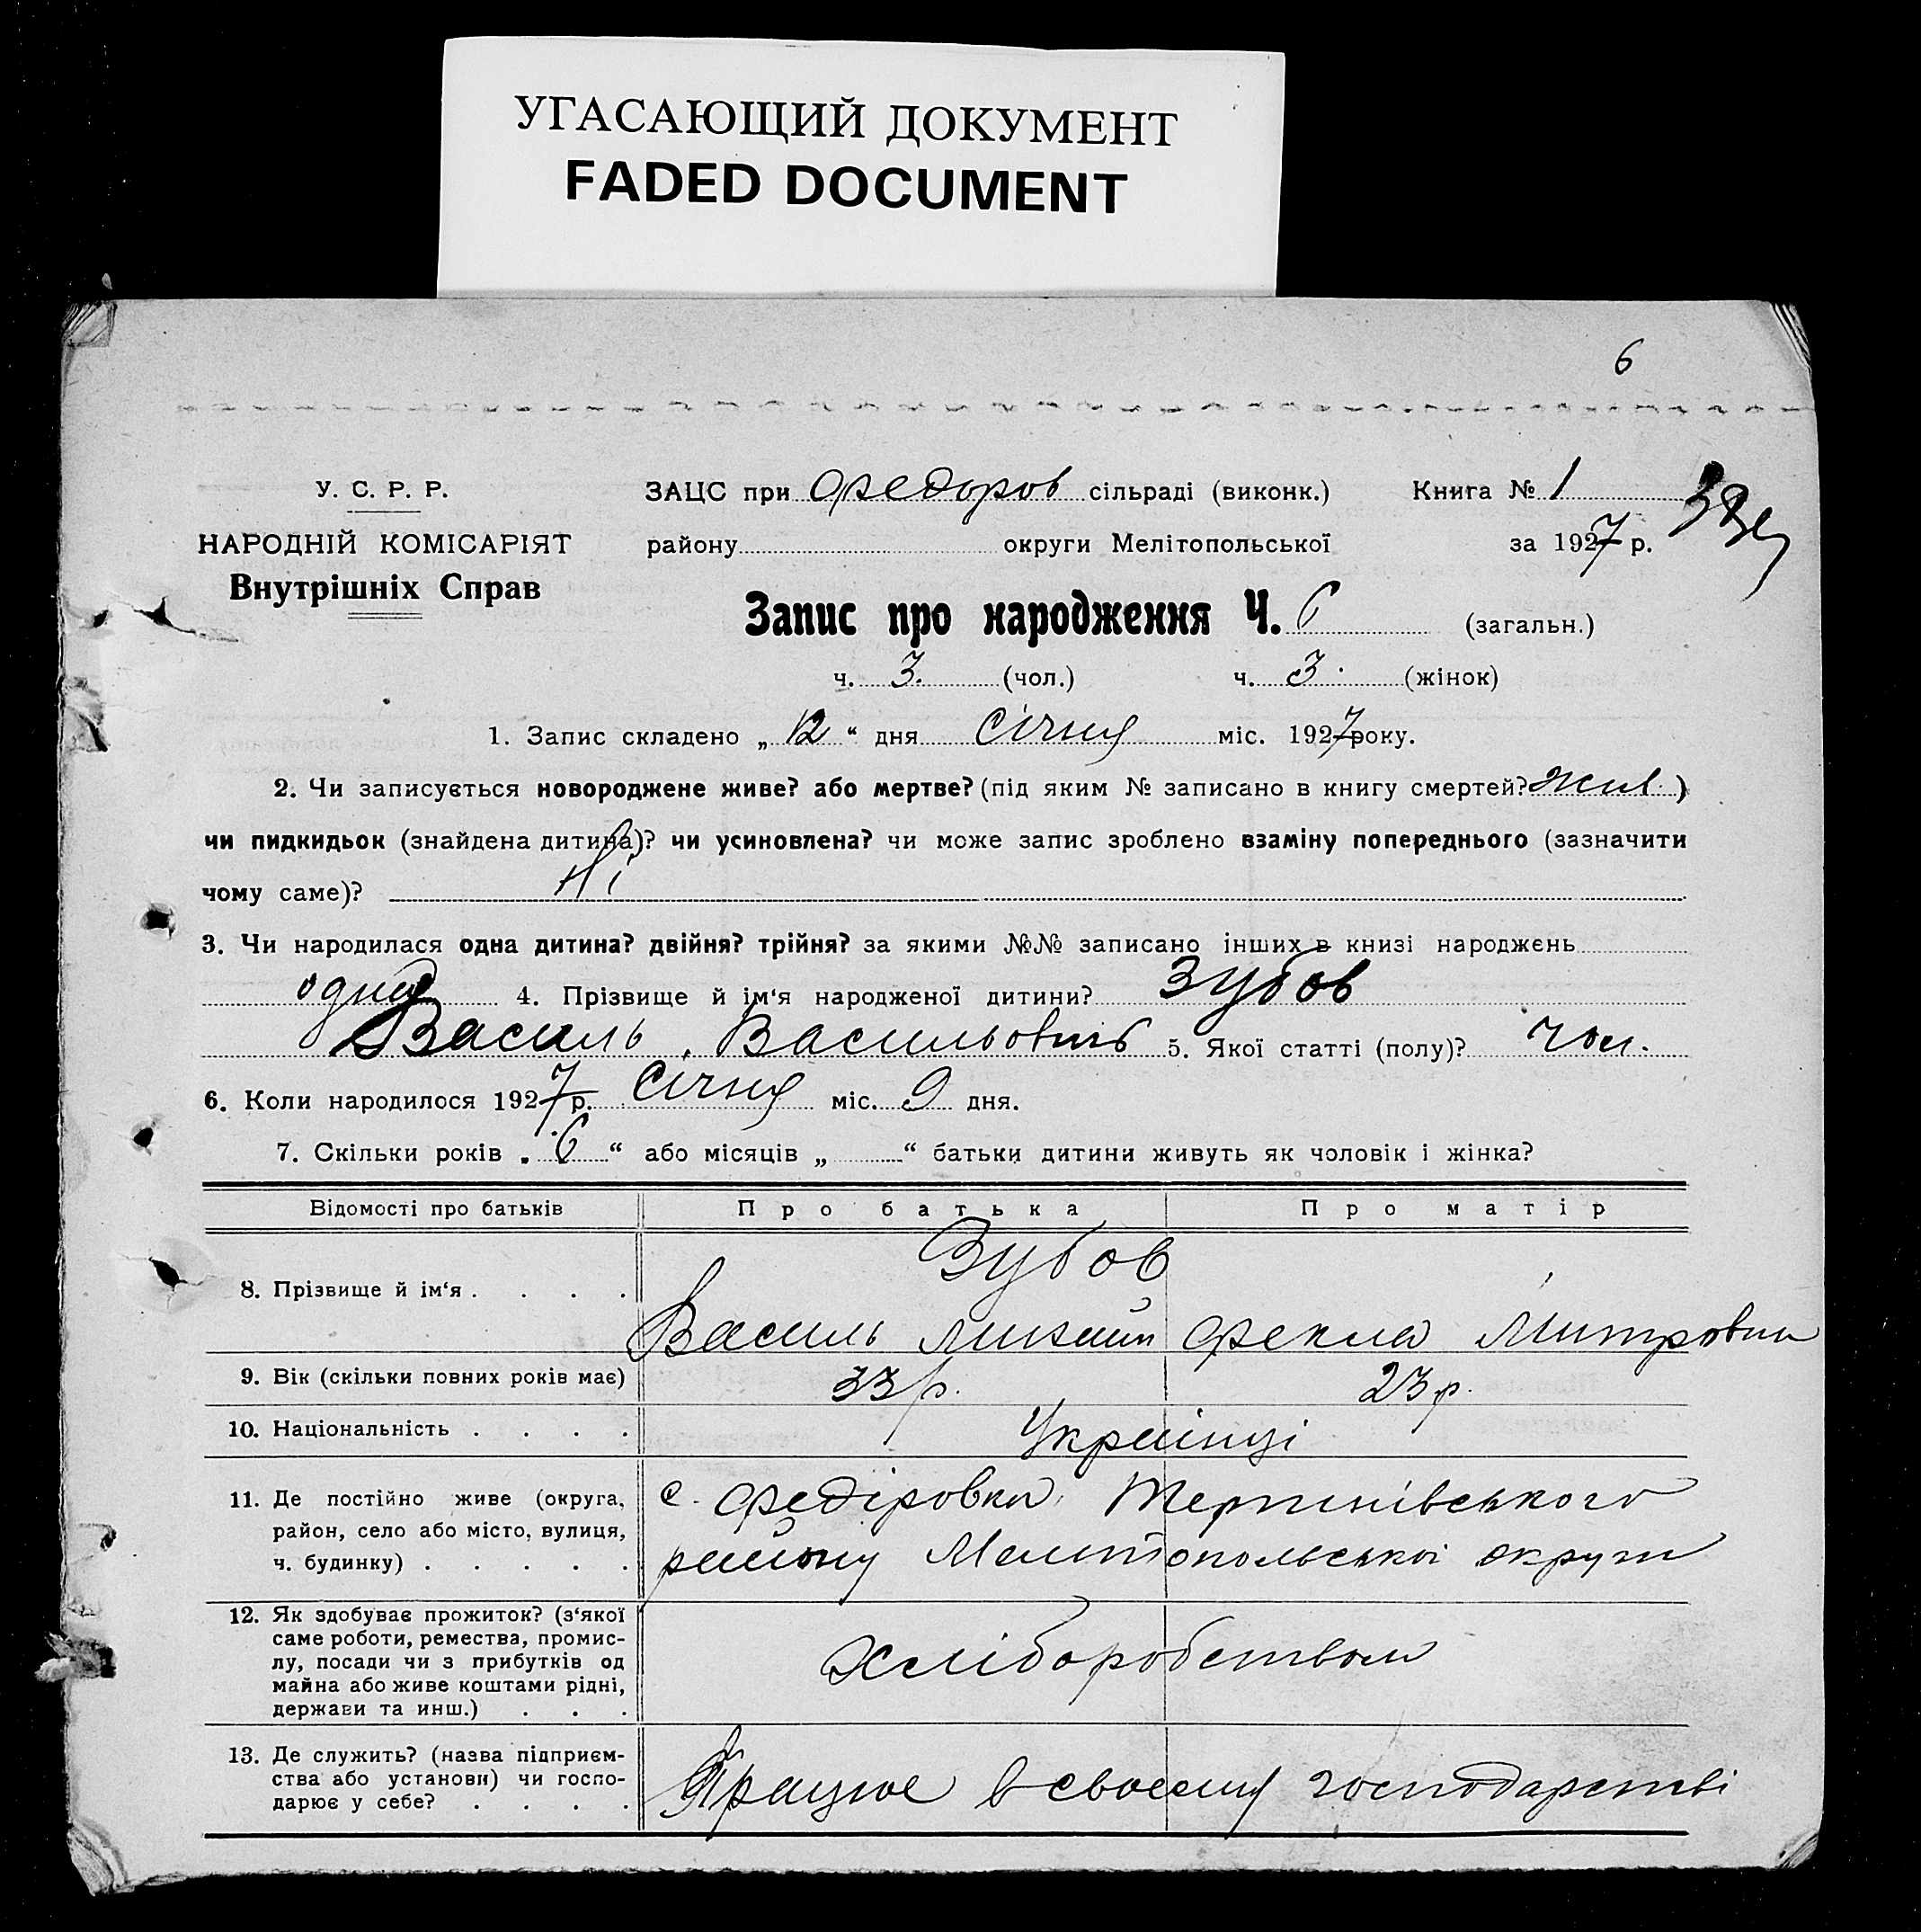 УГАСАЮЩИЙ ДОКУМЕНТ
FADED DOCUMENT
6
У. С. Р. Р.
НАРОДНІЙ КОМІСАРІЯТ
Внутрішніх Справ
ЗАЦС при Федоров сільраді (виконк.) Книга № 1
району округи Мелітопольської за 1927 р.
Запис про народження Ч. 6 (загальн.)
ч. 3. (чол.) ч. 3. (жінок)
1. Запис складено „ 12 “ дня Січня міс. 1927 року.
2. Чи записується новороджене живе? або мертве? (під яким № записано в книгу смертей? жив. )
чи пидкидьок (знайдена дитина)? чи усиновлена? чи може запис зроблено взаміну попереднього (зазначити
чому саме)? Ні
3. Чи народилася одна дитина? двійня? трійня? за якими №№ записано інших в книзі народжень
одна 4. Прізвище й ім‘я народженої дитини? Зубов
Василь Васильовить 5. Якої статті (полу)? чол.
6. Коли народилося 1927 р. Січня міс. 9 дня.
7. Скільки років „ 6 “ або місяців „ “ батьки дитини живуть як чоловік і жінка?
Відомості про батьків Про батька Про матір
8. Прізвище й ім‘я . . . . Зубов
Василь Михайл Фекла Митровна
9. Вік (скільки повних років має) 33 р. 23 р.
10. Національність . . . . Українці
11. Де постійно живе (округа,
район, село або місто, вулиця,
ч. будинку) . . . . .
с. Федіровка, Терпинівського
району Мелітопольської округи
12. Як здобуває прожиток? (з‘якої
саме роботи, ремества, промис-
лу, посади чи з прибутків од
майна або живе коштами рідні,
держави та инш.) . . .
Хліборобством
13. Де служить? (назва підприєм-
ства або установи) чи госпо-
дарює у себе? . . . .
Працює в своєму господарстві